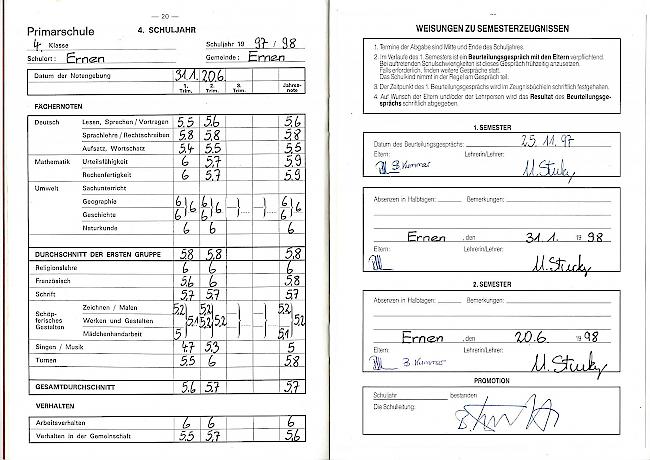 — 20 —
Primarschule 4. SCHULJAHR
4. Klasse Schuljahr 19 97 / 98
Schulort: Ernen Gemeinde: Ernen
Datum der Notengebung 31.1. 20.6.
1. Trim. 2. Trim. 3. Trim. Jahres-note
FÄCHERNOTEN
Deutsch Lesen, Sprechen / Vortragen 5.5 5.6 5.6
Sprachlehre / Rechtschreiben 5.8 5.8 5.8
Aufsatz, Wortschatz 5.4 5.5 5.5
Mathematik Urteilsfähigkeit 6 5.7 5.9
Rechenfertigkeit 6 5.7 5.9
Umwelt Sachunterricht
Geographie 6 6 6 6 6 6
Geschichte 6 6 6
Naturkunde 6 6 6
DURCHSCHNITT DER ERSTEN GRUPPE 5.8 5.8 5.8
Religionslehre 6 6 6
Französisch 5.6 6 5.8
Schrift 5.7 5.7 5.7
Schöp-ferisches Gestalten Zeichnen / Malen 5.2 5.2 5.2
Werken und Gestalten 5.1 5.2 5.2 5.2
Mädchenhandarbeit 5 5.1
Singen / Musik 4.7 5.3 5
Turnen 5.5 6 5.8
GESAMTDURCHSCHNITT 5.6 5.7 5.7
VERHALTEN
Arbeitsverhalten 6 6 6
Verhalten in der Gemeinschaft 5.5 5.7 5.6
WEISUNGEN ZU SEMESTERZEUGNISSEN
1. Termine der Abgabe sind Mitte und Ende des Schuljahres.
2. Im Verlaufe des 1. Semesters ist ein Beurteilungsgespräch mit den Eltern verpflichtend.
Bei auftretenden Schulschwierigkeiten ist dieses Gespräch frühzeitig anzusetzen.
Falls erforderlich, finden weitere Gespräche statt.
Das Schulkind nimmt in der Regel am Gespräch teil.
3. Der Zeitpunkt des 1. Beurteilungsgesprächs wird im Zeugnisbüchlein schriftlich festgehalten.
4. Auf Wunsch der Eltern und/oder der Lehrperson wird das Resultat des Beurteilungsge-
sprächs schriftlich abgegeben.
1. SEMESTER
Datum des Beurteilungsgesprächs: 25.11.97
Eltern: Lehrerin/Lehrer:
Absenzen in Halbtagen: Bemerkungen:
Ernen , den 31.1. 19 98
Eltern: Lehrerin/Lehrer:
2. SEMESTER
Absenzen in Halbtagen: Bemerkungen:
Ernen , den 20.6 19 98
Eltern: Lehrerin/Lehrer:
PROMOTION
Schuljahr bestanden
Die Schulleitung: